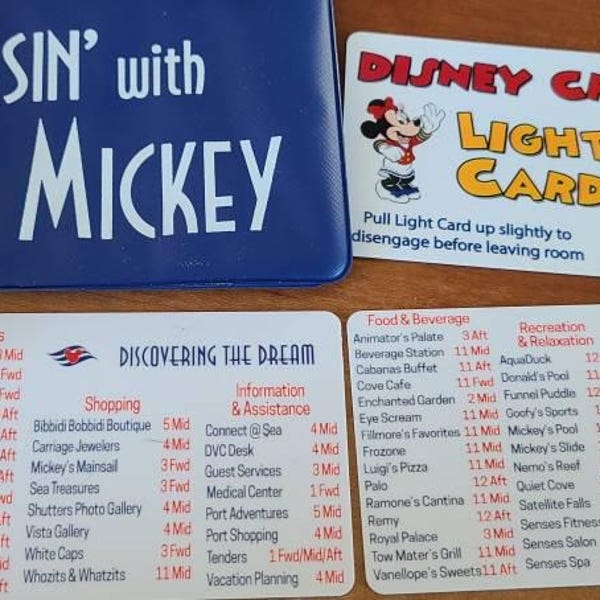 SIN' with
MICKEY
DISNEY
LIGHT
CARD
Pull Light Card up slightly to
disengage before leaving room
DISCOVERING THE DREAM
Mid
Fwd
Fwd
Aft
Aft
Mid
Aft
Aft
Mid
Aft
Shopping
Bibbidi Bobbidi Boutique 5 Mid
Carriage Jewelers 4 Mid
Mickey's Mainsail 3 Fwd
Sea Treasures 3 Fwd
Shutters Photo Gallery 4 Mid
Vista Gallery 4 Mid
White Caps 3 Fwd
Whozits & Whatzits 11 Mid
Information
& Assistance
Connect @ Sea 4 Mid
DVC Desk 4 Mid
Guest Services 3 Mid
Medical Center 1 Fwd
Port Adventures 5 Mid
Port Shopping 4 Mid
Tenders 1 Fwd/Mid/Aft
Vacation Planning 4 Mid
Food & Beverage
Animator's Palate 3 Aft
Beverage Station 11 Mid
Cabanas Buffet 11 Aft
Cove Cafe 11 Fwd
Enchanted Garden 2 Mid
Eye Scream 11 Mid
Fillmore's Favorites 11 Mid
Frozone 11 Mid
Luigi's Pizza 11 Mid
Palo 12 Aft
Ramone's Cantina 11 Mid
Remy 12 Aft
Royal Palace 3 Mid
Tow Mater's Grill 11 Mid
Vanellope's Sweets 11 Aft
Recreation
& Relaxation
AquaDuck 12
Donald's Pool 11
Funnel Puddle 12
Goofy's Sports
Mickey's Pool
Mickey's Slide
Nemo's Reef
Quiet Cove
Satellite Falls
Senses Fitness
Senses Salon
Senses Spa